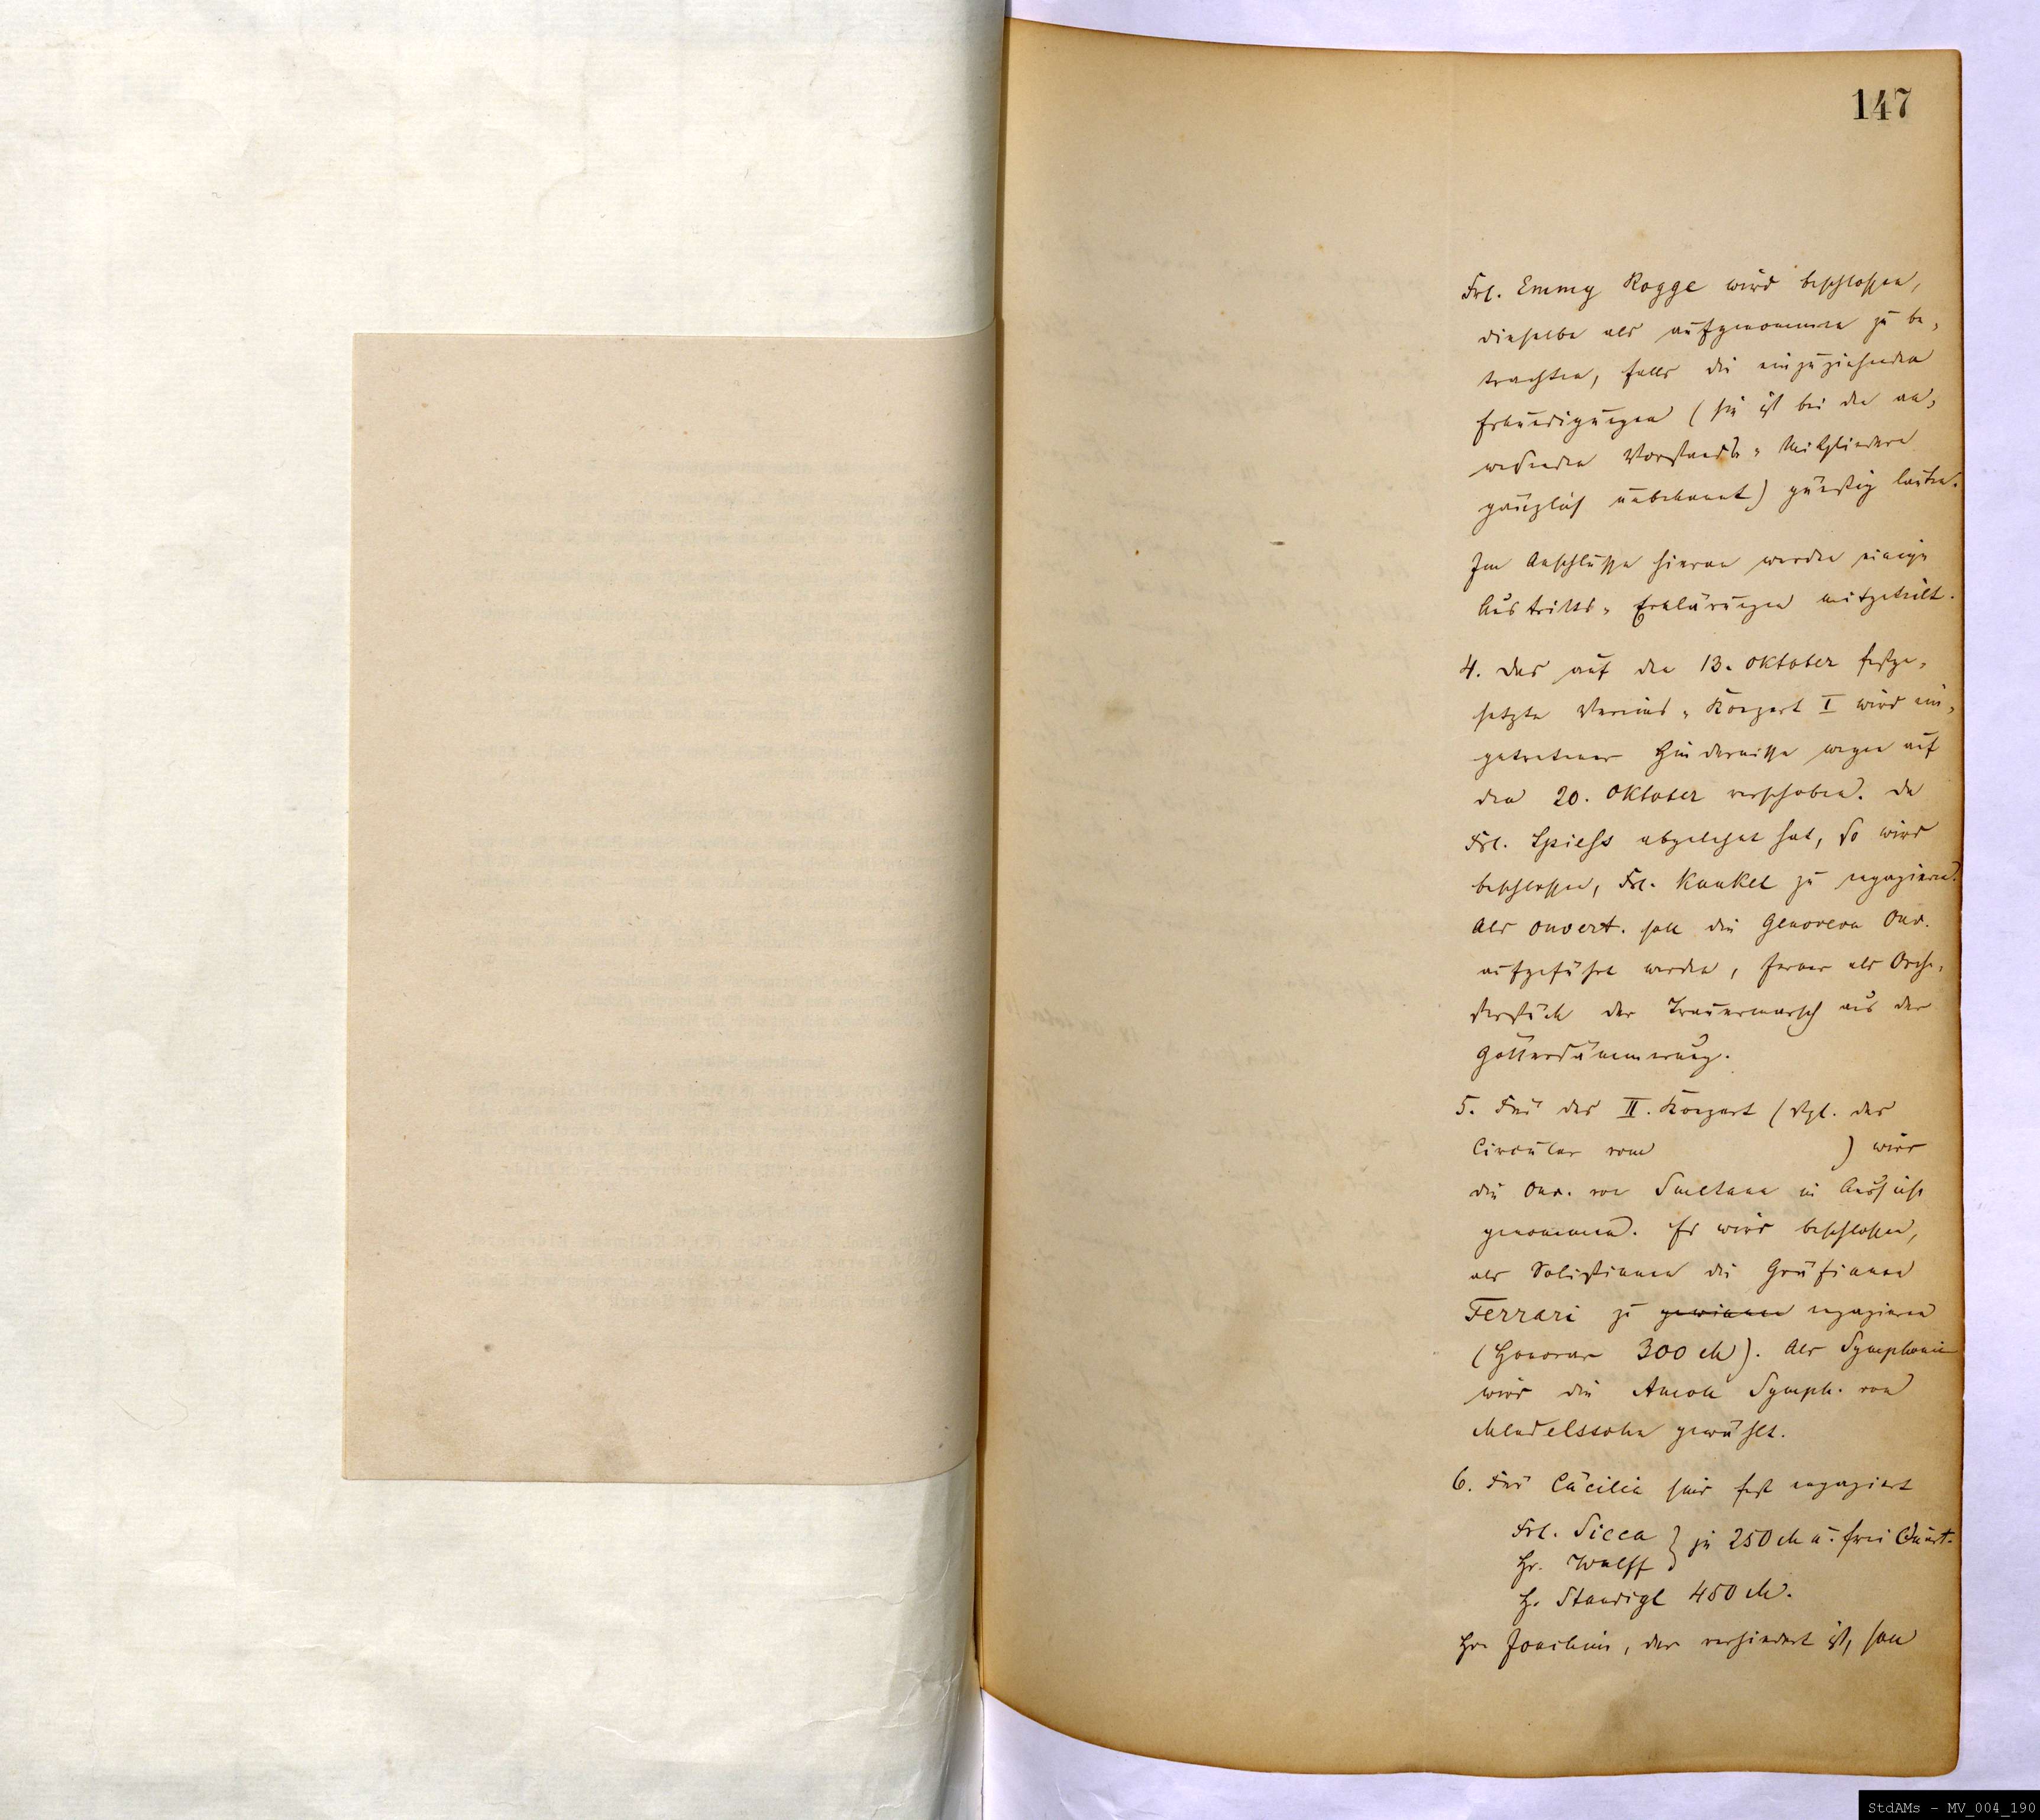 147
Frl. Emmy Rogge wird beschlossen,
dieselbe als aufgenommen zu be-
trachten, falls die einzuziehenden
Erkundigungen (sie ist bei den an-
wesenden Vorstands-Mitgliedern
gänzlich unbekannt) günstig lauten.
Im Anschlusse hieran werden einige
Austritts-Erklärungen mitgeteilt.
4. Das auf den 13. Oktober festge-
setzte Vereins-Konzert I wird ein-
getretener Hindernisse wegen auf
den 20. Oktober verschoben. Da
Frl. Spiess abgelehnt hat, so wird
beschlossen, Frl. Kankel zu engagieren.
Als Ouvert. soll die Genoveva Ouv.
aufgeführt werden, ferner als Orche-
sterstück der Trauermarsch aus der
Götterdämmerung.
5. Für das II. Konzert (vgl. das
Circular vom ) wird
die Ouv. von Smetana in Aussicht
genommen. Es wird beschlossen,
als Solistinnen die Gräfinnen
Ferrari zu gewinnen engagieren
(Honorar 300 M). Als Symphonie
wird die Amoll Symph. von
Mendelssohn gewählt.
6. Für Cäcilia sind fest engagiert
Frl. Sicca } je 250 M u. frei Quart.
Hr. Wulff
H. Staudigl 450 M.
Hr. Joachim, der verhindert ist, soll
StdAMs - MV_004_190